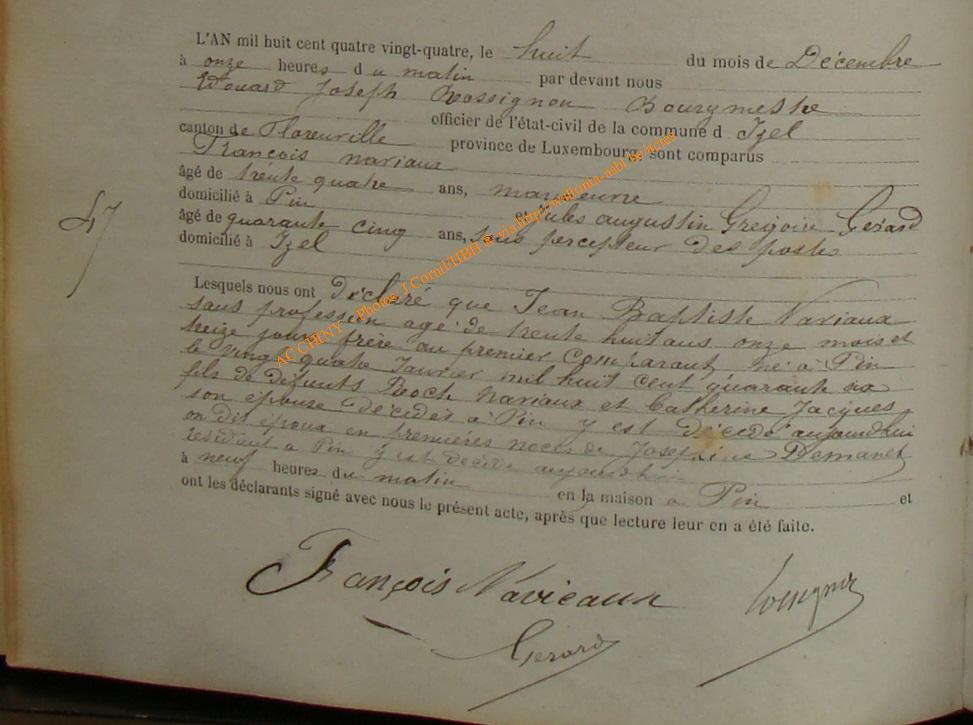 L'AN mil huit cent quatre vingt-quatre, le huit du mois de Décembre
à onze heures du matin par devant nous
Edouard Joseph Rossignon Bourgmestre
officier de l'état-civil de la commune d Izel
canton de Florenville province de Luxembourg, sont comparus
François Naviaux
âgé de trente quatre ans, manoeuvre
domicilié à Pin et Jules augustin Grégoire Gérard
âgé de quarante cinq ans, sous percepteur des postes
domicilié à Izel
47
Lesquels nous ont déclaré que Jean Baptiste Naviaux
sans profession agé de trente huit ans onze mois et
seize jours frère au premier comparant né à Pin
le vingt quatre Janvier mil huit cent quarante six
fils de défunts Roch Naviaux et Catherine Jacques
son épouse décédés à Pin y est décédé aujourdhui
on dit époux en premières noces de Josephine Demanet
résidant a Pin y est décédé aujourdhui
à neuf heures du matin en la maison a Pin et
ont les déclarants signé avec nous le présent acte, après que lecture leur en a été faite.
François Navieaux
Gerard
AC CHINY - Photos J.Cornil/HBH © via http://wallonia-asbl.be/actes